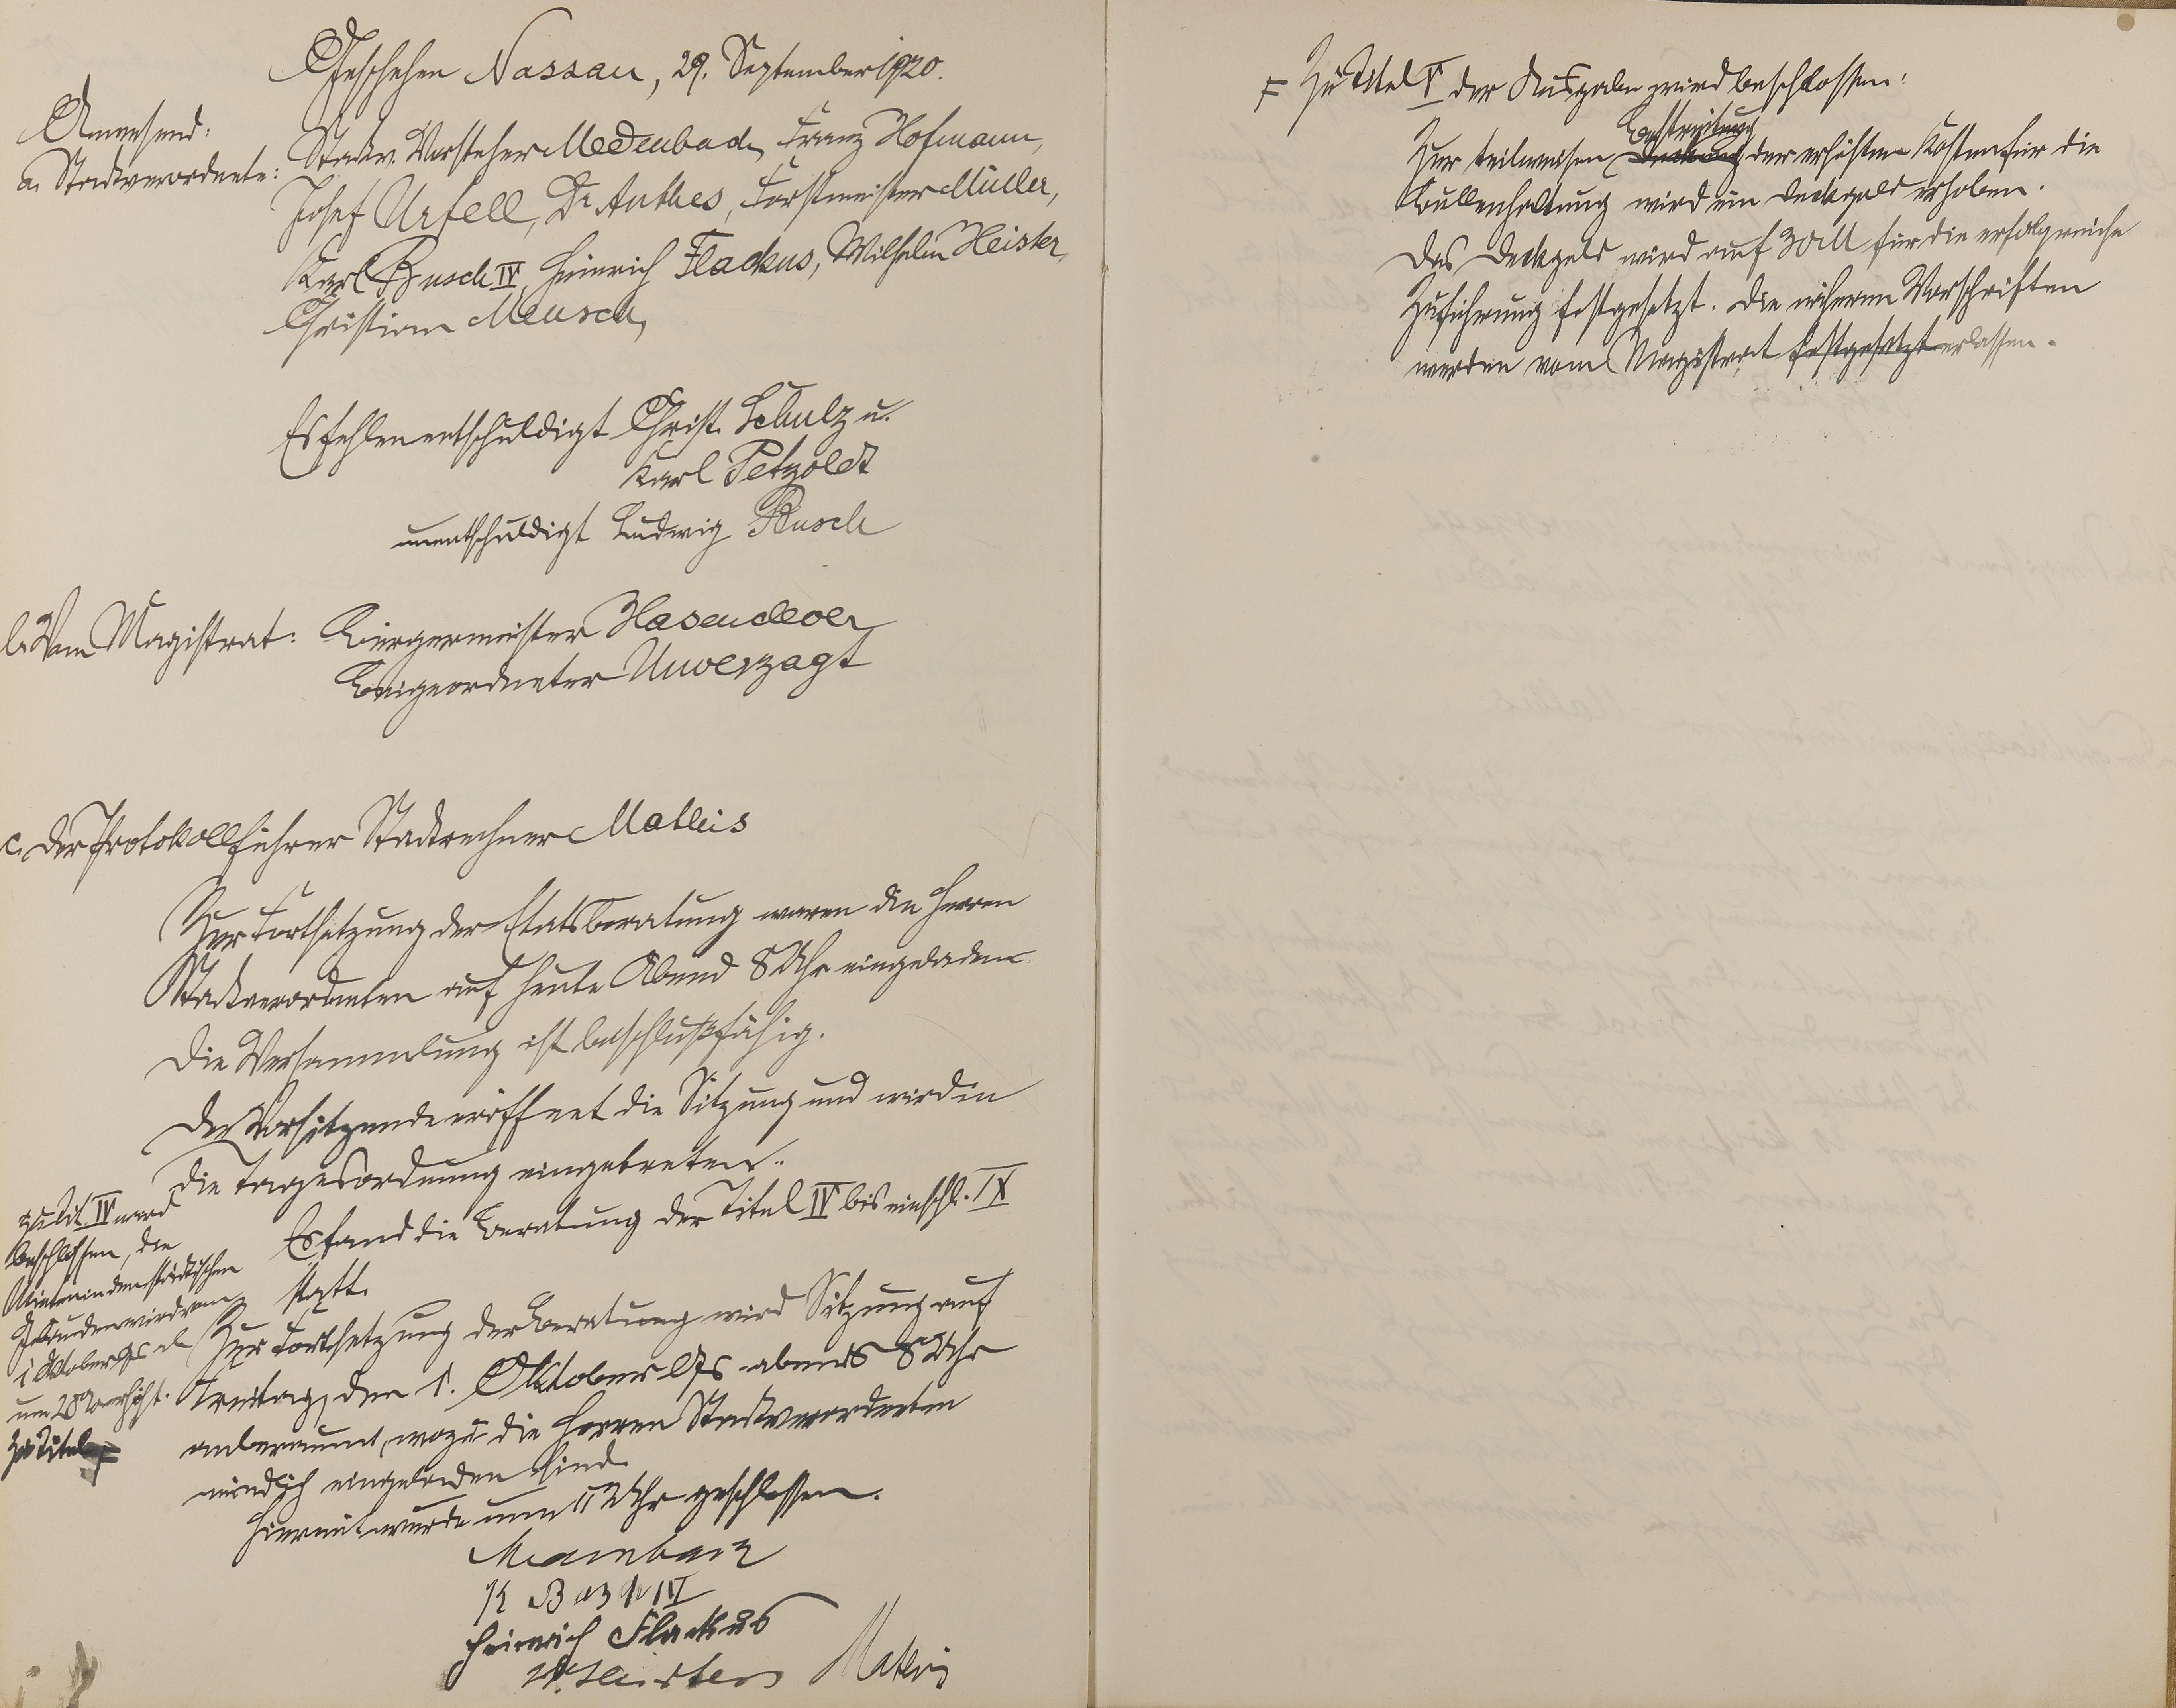 Geschehen Nassau, 29. September 1920.
Anwesend:
a. Stadtverordnete:
Stadtv. Vorsteher Medenbach, Franz Hofmann,
Josef Urfell, Dr Anthes, Forstmeister Müller,
Karl Busch IV, Heinrich Flackus, Wilhelm Heister,
Christian Meusch,
Es fehlen entschuldigt Christ. Schulz u.
Karl Petzoldt
unentschuldigt Ludwig Busch
b. Vom Magistrat: Bürgermeister Hasenclever
Beigeordneter Unverzagt
c. Der Protokollführer Stadtrechner Matheis
Zur Fortsetzung der Etatsberatung waren die Herren
Stadtverordneten auf heute Abend 8 Uhr eingeladen
Die Versammlung ist beschlußfähig.
Der Vorsitzende eröffnet die Sitzung und wird in
die Tagesordnung eingetreten.
Es fand die Beratung der Titel IV bis einschl. IX
statt.
Zur Fortsetzung der Beratung wird Sitzung auf
Freitag, den 1. Oktober ds Js abends 8 Uhr
anberaumt, wozu die Herren Stadtverordneten
mündlich eingeladen sind.
Hiermit wurde um 11 Uhr geschlossen.
zu Tit. IV ward
beschlossen, die
Mieten in den städtischen
Gebäuden wird vom
1 Oktober ds Js ab
um 20% erhöht.
Zu Titel F
Medenbach
K Busch IV
Heinrich Flackus
W. Heister Matheis
F Zu Titel V der Ausgabe wird beschlossen:
Bestreitung
Zur teilweisen Deckung der erhöhten Kosten für die
Bullenhaltung wird ein Deckgeld erhoben.
Das Deckgeld wird auf 30 M für die erfolgreiche
Zuführung festgesetzt. Die näheren Vorschriften
werden vom Magistrat festgesetzt erlassen.